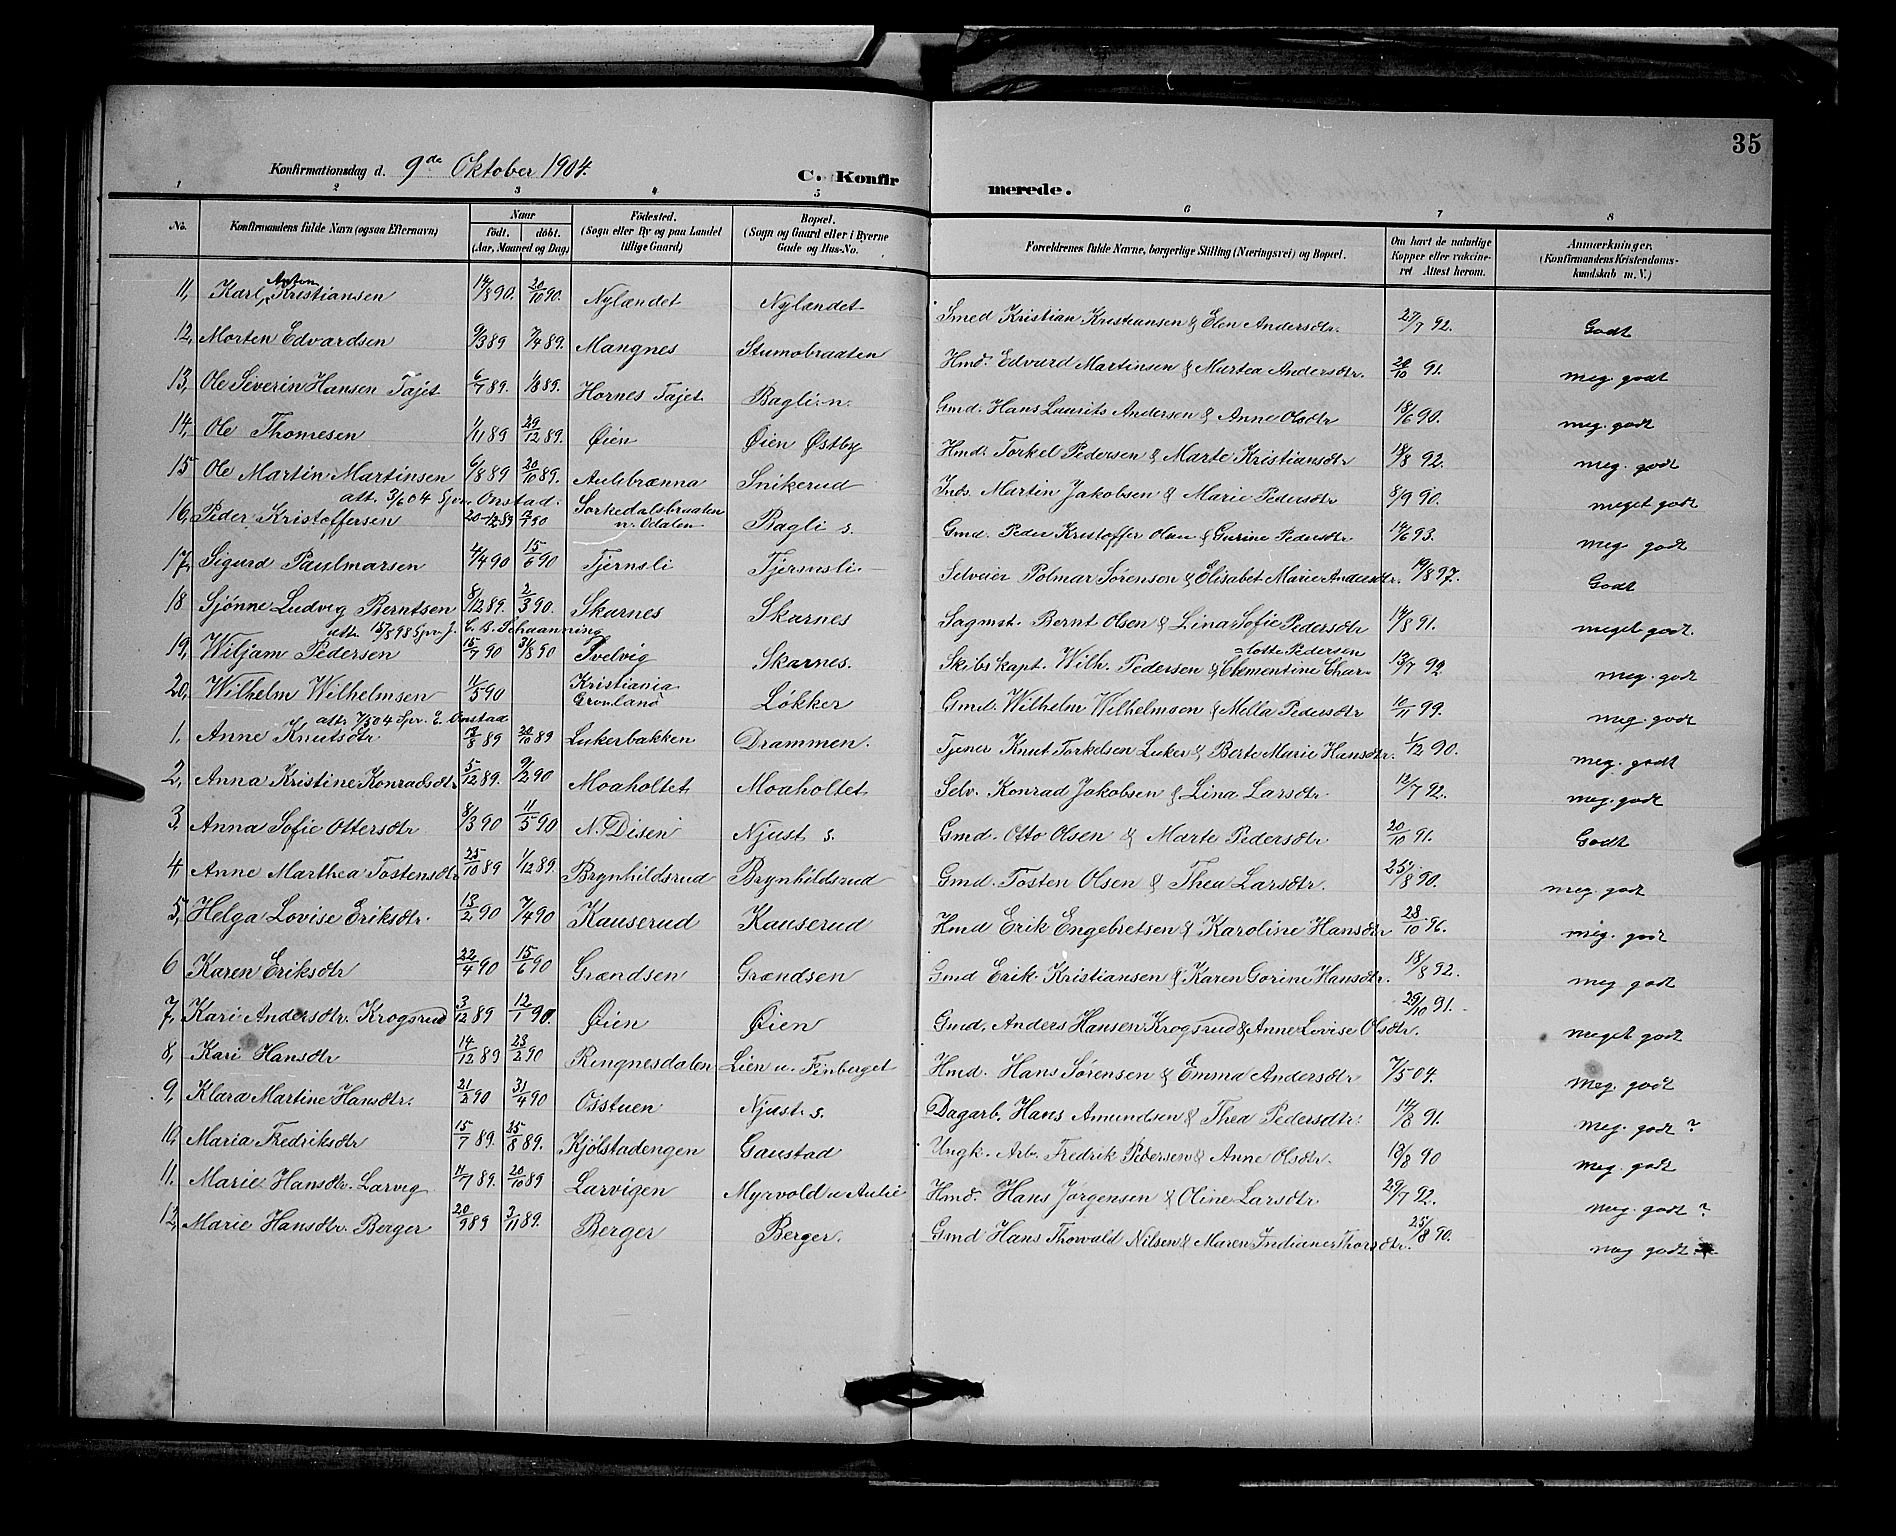 35
Konfirmationsdag d. 9de Oktober 1904.
C. Konfirmerede.
1 2 3 4 5 6 7 8
No. Konfirmandens fulde Navn (ogsaa Efternavn) Naar født. døbt. (Aar, Maaned og Dag) Fødested. (Sogn eller By og paa Landet tillige Gaard) Bopæl. (Sogn og Gaard eller i Byerne Gade og Hus-No. Forældrenes fulde Navne, borgerlige Stilling (Næringsvei) og Bopæl. Om havt de naturlige Kopper eller vaccineret Attest herom. Anmærkninger. (Konfirmandens Kristendomskundskab m. V.)
11, Karl Anton Kristiansen 14/8 90. 20/10 90. Nylændet Nylændet Smed Kristian Kristiansen & Elen Andersdtr. 27/7 92. Godt
12, Morten Edvardsen 9/3 89 7/4 89. Mangnes Stumobraaten Hmd. Edvard Martinsen & Martea Andersdtr. 20/10 91. meg. godt
13, Ole Severin Hansen Tajet 6/7 89. 1/8 89. Hornes Tajet Bagli n. Gmd. Hans Laurits Andersen & Anne Olsdtr 18/6 90. meg. godt
14, Ole Thomesen 1/11 89 29/12 89. Øien Øien Østby Hmd. Torkel Pedersen & Marte Kristiansdtr 18/8 92. meg. godt
15 Ole Martin Martinsen 6/8 89 20/10 89. Aulibrænna Snikerud Inds. Martin Jakobsen & Marie Pedersdtr 8/9 90. meget godt
att. 3/6 04 Spr. Onstad.
16, Peder Kristoffersen 20-12 89 12/1 90 Sørkedalsbraaten n. Odalen Bagli s. Gmd. Peder Kristoffer Olsen & Gurine Pedersdtr 14/6 93. meg godt
17, Sigurd Paulmarsen 4/4 90 15/6 90 Tjernsli Tjernsli Selveier Polmar Sørensen & Elisabet Marie Andersdtr. 19/8 97. Godt
18 Sjønne Ludvig Berntsen 8/12 89. 2/3 90. Skarnes Skarnes Sagmst. Bernt Olsen & Lina Sofie Pedersdtr 17/8 91. meget godt.
att. 15/8 98 Spr. J. C. B. Schaanning
19, Wiljam Pedersen 15/7 90 31/8 90 Svelvig Skarnes. Skibskapt. Wilh. Pedersen & Clementine Charlotte Pedersen 13/7 92 meg. godt
20, Wilhelm Wilhelmsen 11/5 90 Kristiania Grønland Løkker Gmd. Wilhelm Wilhelmsen & Mella Pedersdtr 10/11 99. meg. godt
att. 7/5 04 Spr. E. Onstad
1, Anne Knutsdtr 18/8 89 20/10 89 Lukerbakken Drammen. Tjener Knut Torkelsen Luker & Berte Marie Hansdtr. 1/12 90. meg. godt
2, Anna Kristine Konradsdtr 5/12 89. 9/2 90 Moaholtet Moaholtet Selv. Konrad Jakobsen & Lina Larsdtr 12/7 92. meg. godt
3, Anna Sofie Ottersdtr 8/3 90 11/5 90 N. Disen Njust s. Gmd. Otto Olsen & Marte Pedersdtr 20/10 91. Godt
4, Anne Marthea Tostensdtr 25/10 89 1/12 89. Brynhildsrud Brynhildsrud Gmd. Tosten Olsen & Thea Larsdtr. 25/8 90. meg. godt
5, Helga Lovise Eriksdtr. 13/2 90 7/4 90 Kauserud Kauserud Hmd Erik Engebretsen & Karoline Hansdtr 28/10 96. meg. godt
6 Karen Eriksdtr 22/4 90 15/6 90 Grændsen Grændsen Gmd Erik Kristiansen & Karen Gorine Hansdtr. 18/8 92. meg godt
7, Kari Andersdtr. Krogsrud 3/12 89 12/1 90. Øien Øien Gmd. Anders Hansen Krogsrud & Anne Lovise Olsdtr. 29/10 91. meget godt
8, Kari Hansdtr 14/12 89 23/2 90 Ringnesdalen Lien u. Finberget Hmd. Hans Sørensen & Emma Andersdtr 7/5 04. meg. godt
9, Klara Martine Hansdtr. 21/2 90 31/4 90 Osstuen Njust s. Dagarb. Hans Amundsen & Thea Pedersdtr. 14/8 91. meg. godt ?
10, Maria Fredriksdtr 15/7 89. 25/8 89. Kjølstadengen Gaustad Ungk. Arb. Fredrik Pedersen & Anne Olsdtr. 18/8 90 meg. godt
11. Marie Hansdtr. Larvig 11/7 89. 20/10 89 Larvigen Myrvold u Aulie Hmd. Hans Jørgensen & Oline Larsdtr 29/7 92. meg. godt ?
12, Marie Hansdtr. Berger 20/9 89 3/11 89. Berger Berger. Gmd Hans Thorvald Nilsen & Maren Indianer Thorsdtr. 25/8 90. meg godt.